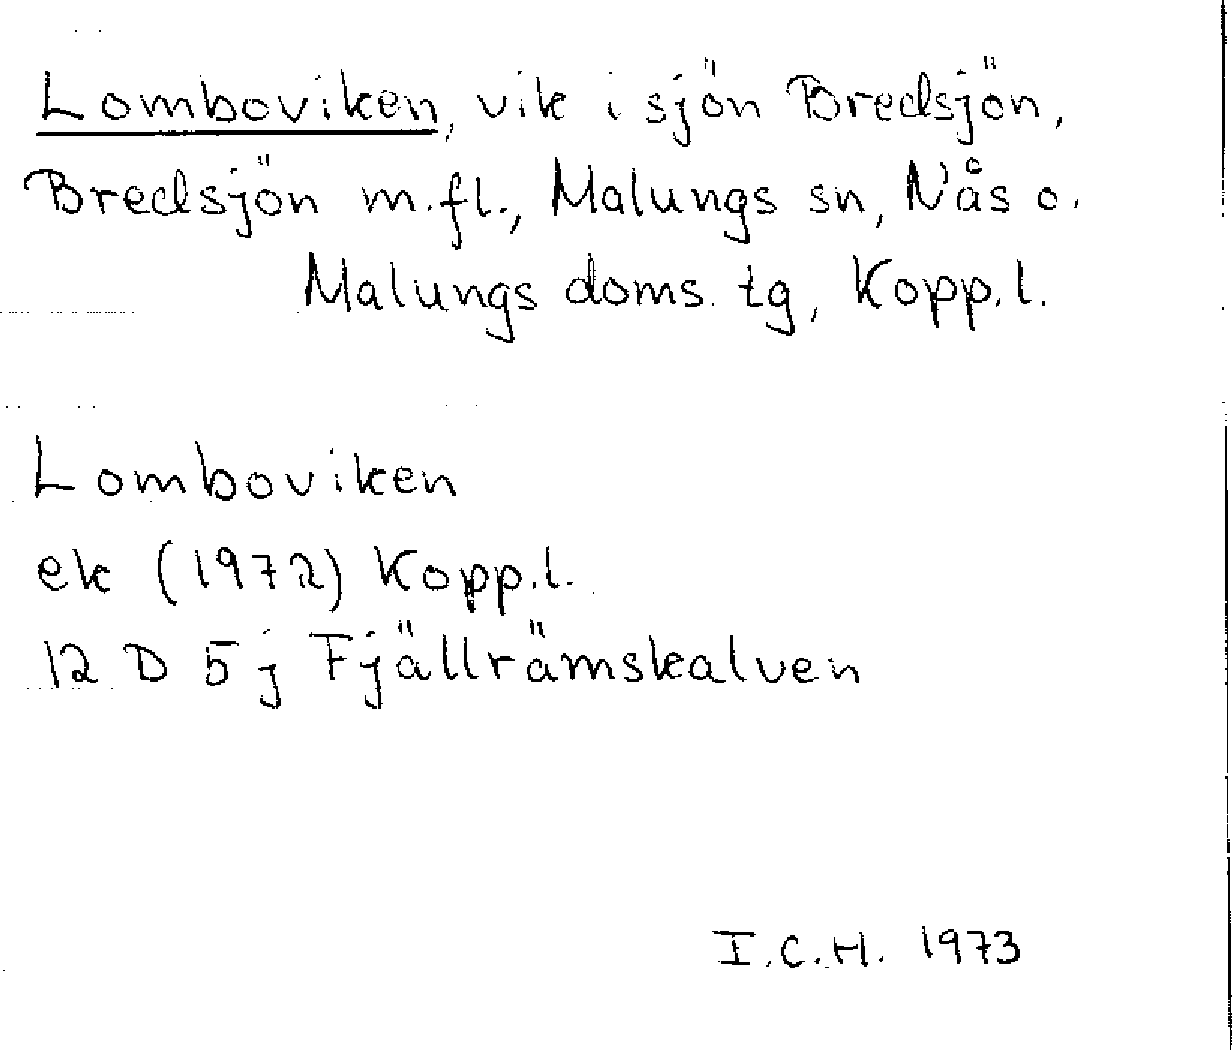 Lomboviken, vik i sjön Bredsjön,
Bredsjön m.fl., Malungs sn, Nås o.
Malungs doms. tg, Kopp.l.
Lomboviken
ek (1972) Kopp.l.
12 D 5 j Fjällrämskalven
I.C.H. 1973